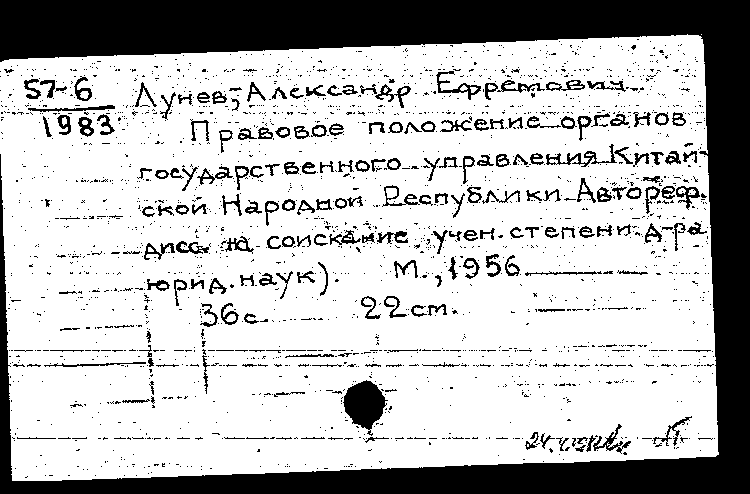 57-6 Лунев, Александр Ефремович
1983 Правовое положение органов
государственного управления Китай-
ской Народной Республики. Автореф.
дисс. на соискание учен. степени д-ра
юрид. наук). М., 1956
36с. 22см.
24.